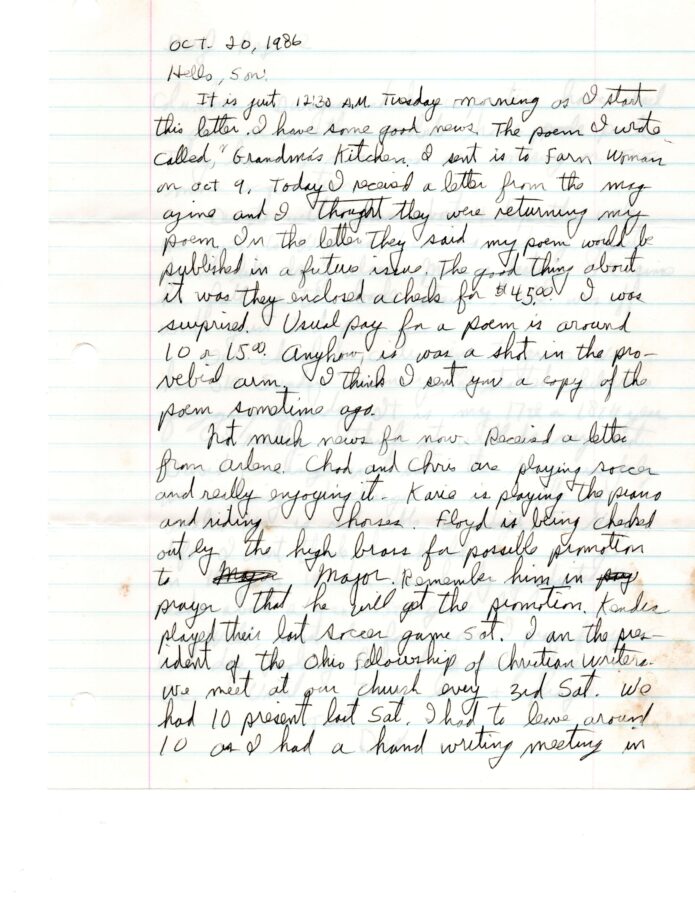 OCT. 20, 1986
Hello, Son.
It is just 12:30 A.M. Tuesday morning as I start
this letter. I have some good news. The poem I wrote
called, "Grandma's Kitchen. I sent is to Farm Woman
on Oct 9. Today I received a letter from the mag
azine and I thought they were returning my
poem. In the letter they said my poem would be
published in a future issue. The good thing about
it was they enclosed a check for $45.00. I was
surprised. Usual pay for a poem is around
10 or 15.00. Anyhow, is was a shot in the pro-
verbial arm. I think I sent you a copy of the
poem sometime ago.
Not much news for now. Received a letter
from Arlene. Chad and Chris are playing soccer
and really enjoying it. Karie is playing the piano
and riding horses. Floyd is being checked
out by the high brass for possible promotion
to Major. Remember him in
prayer that he will get the promotion.
played their last soccer game Sat. I am the pres-
ident of the Ohio Fellowship of Christian Writers.
We meet at our church every 3rd Sat. We
had 10 present last Sat. I had to leave around
10 as I had a hand writing meeting in